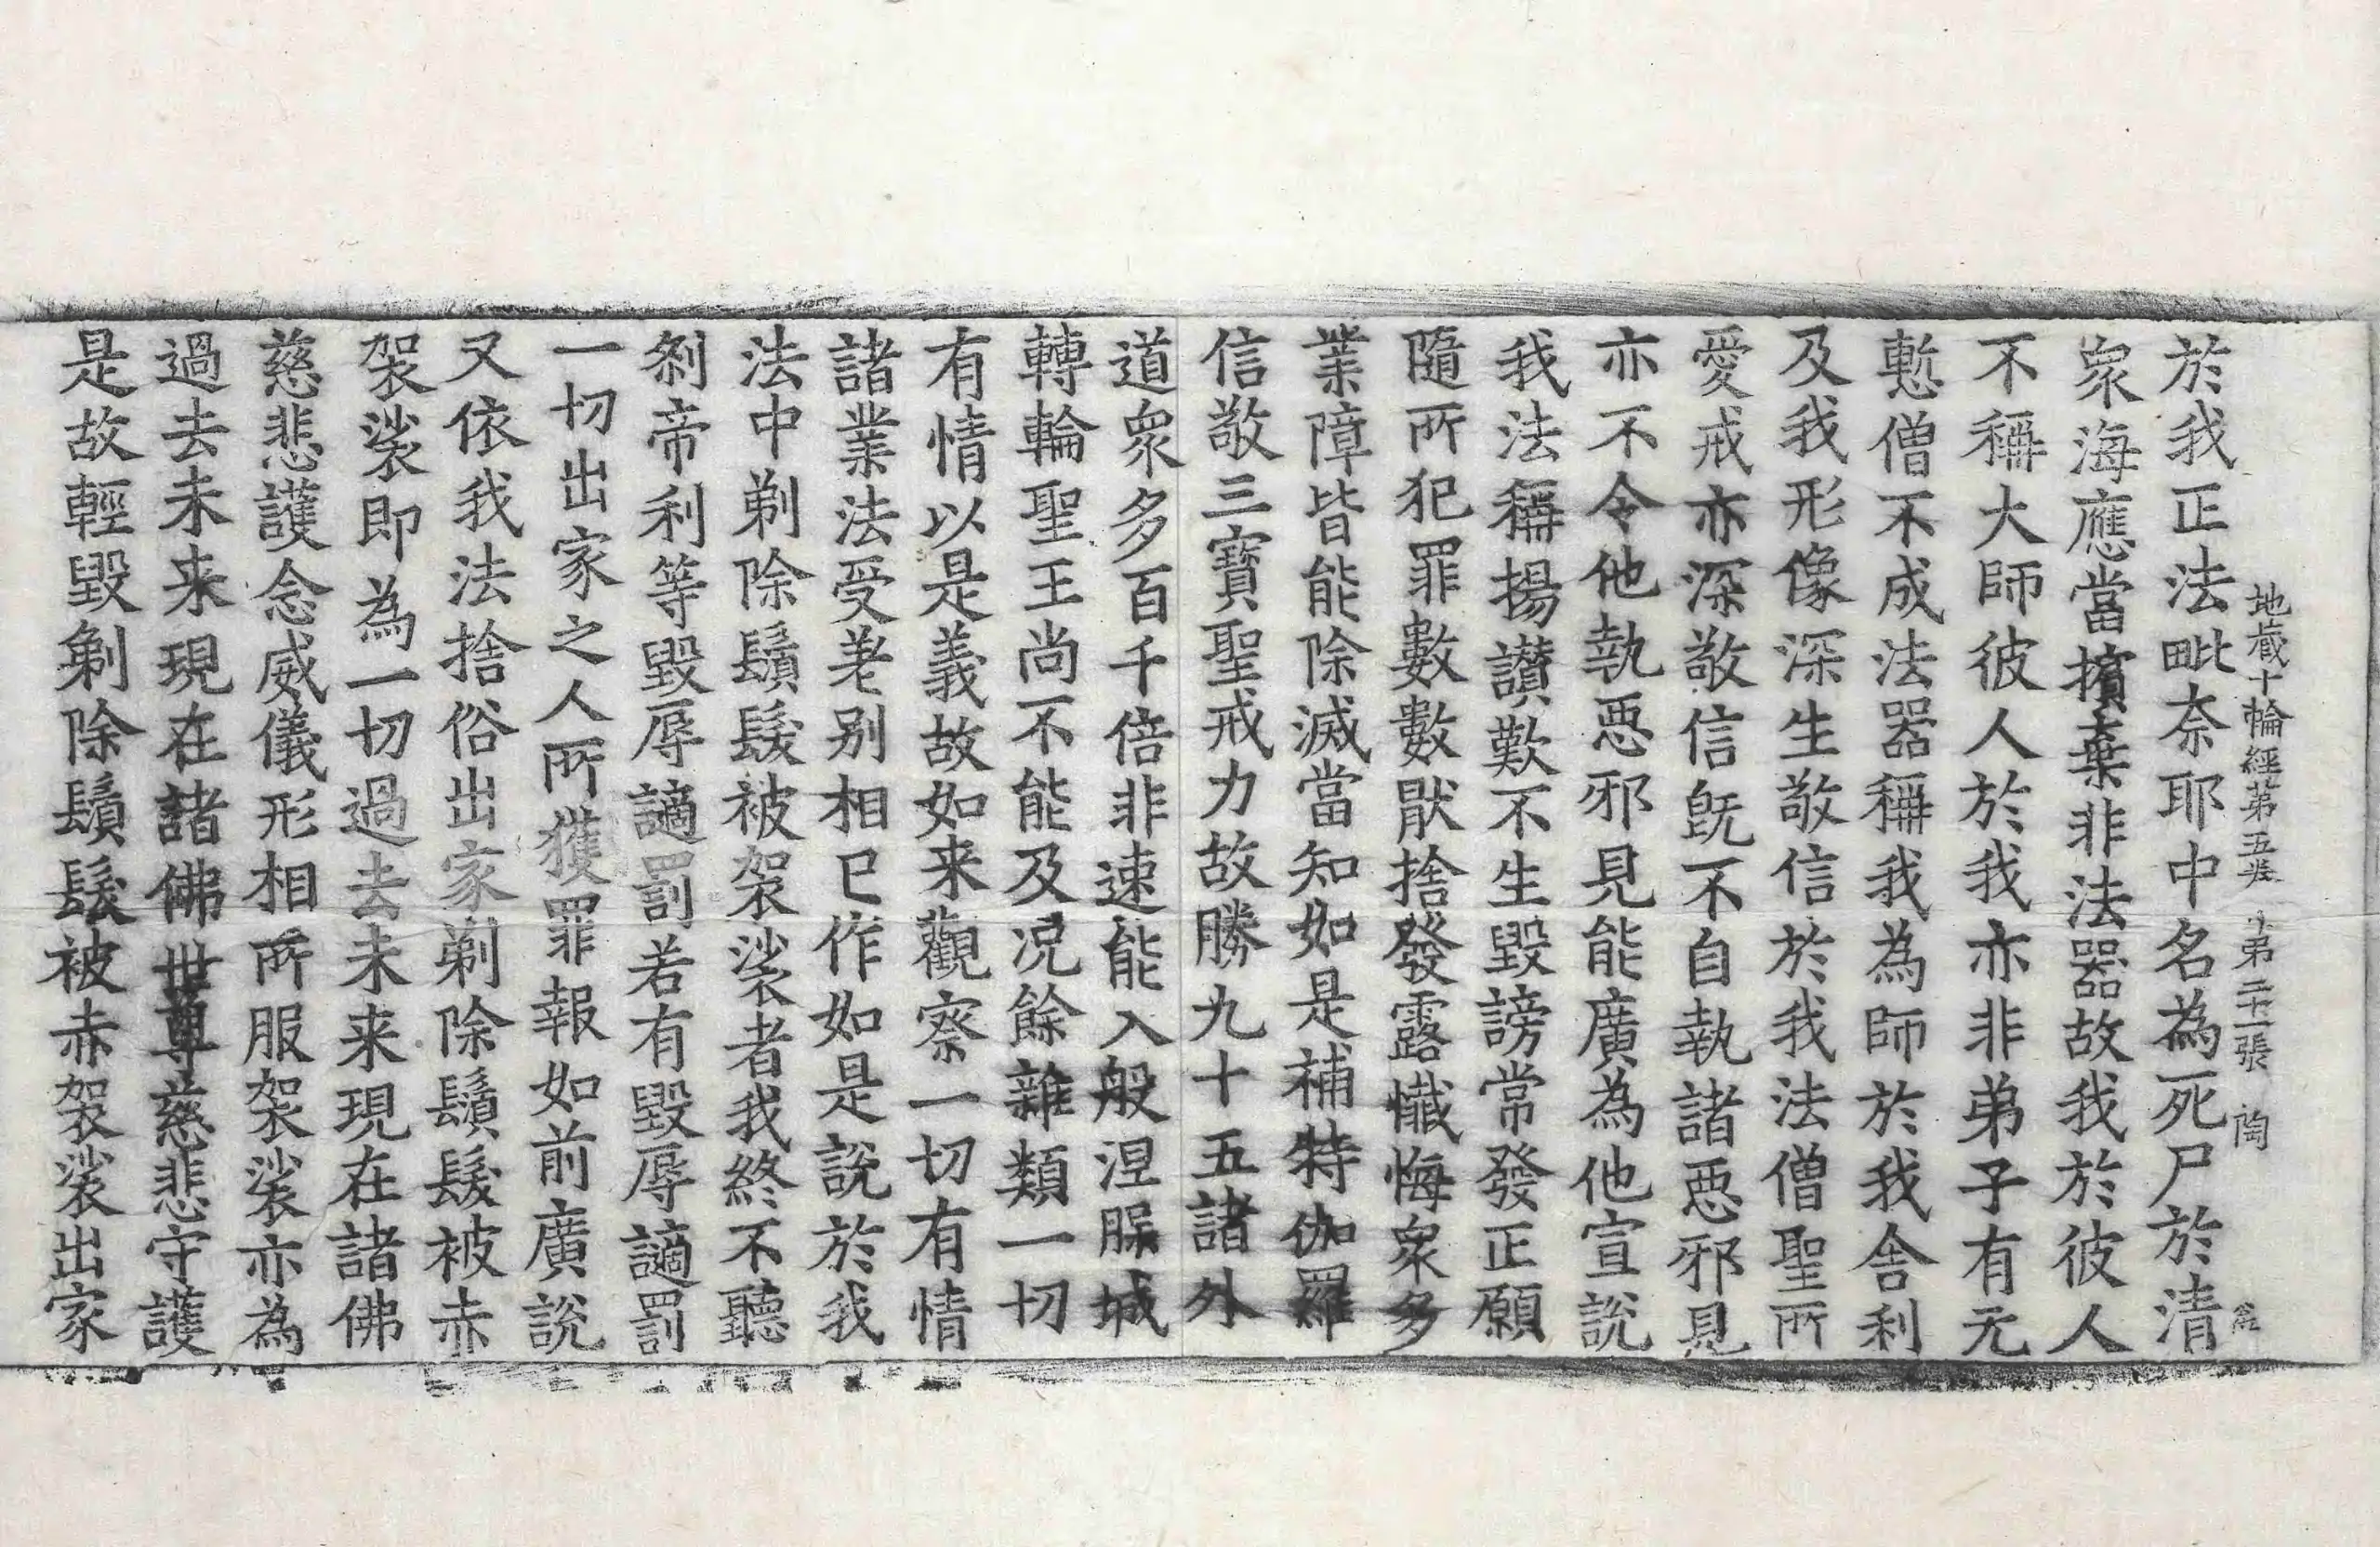 地藏十輪經第五卷 十 第二十一張 陶
於我正法毗奈耶中名為死尸於清
衆海應當擯棄非法器故我於彼人
不稱大師彼人於我亦非弟子有无
慙僧不成法器稱我為師於我舍利
及我形像深生敬信於我法僧聖所
愛戒亦深敬信旣不自執諸惡邪見
亦不令他執惡邪見能廣為他宣說
我法稱揚讃歎不生毀謗常發正願
隨所犯罪數數猒捨發露懺悔衆多
業障皆能除滅當知如是補特伽羅
信敬三寶聖戒力故勝九十五諸外
道衆多百千倍非速能入般涅槃城
轉輪聖王尚不能及况餘雜類一切
有情以是義故如来觀察一切有情
諸業法受差別相已作如是說於我
法中剃除鬚髮被袈裟者我終不聽
刹帝利等毀辱謫罰若有毀辱謫罰
一切出家之人所獲罪報如前廣說
又依我法捨俗出家剃除鬚髮被赤
袈裟即為一切過去未来現在諸佛
慈悲護念威儀形相所服袈裟亦為
過去未来現在諸佛世尊慈悲守護
是故輕毀剃除鬚髮被赤袈裟出家